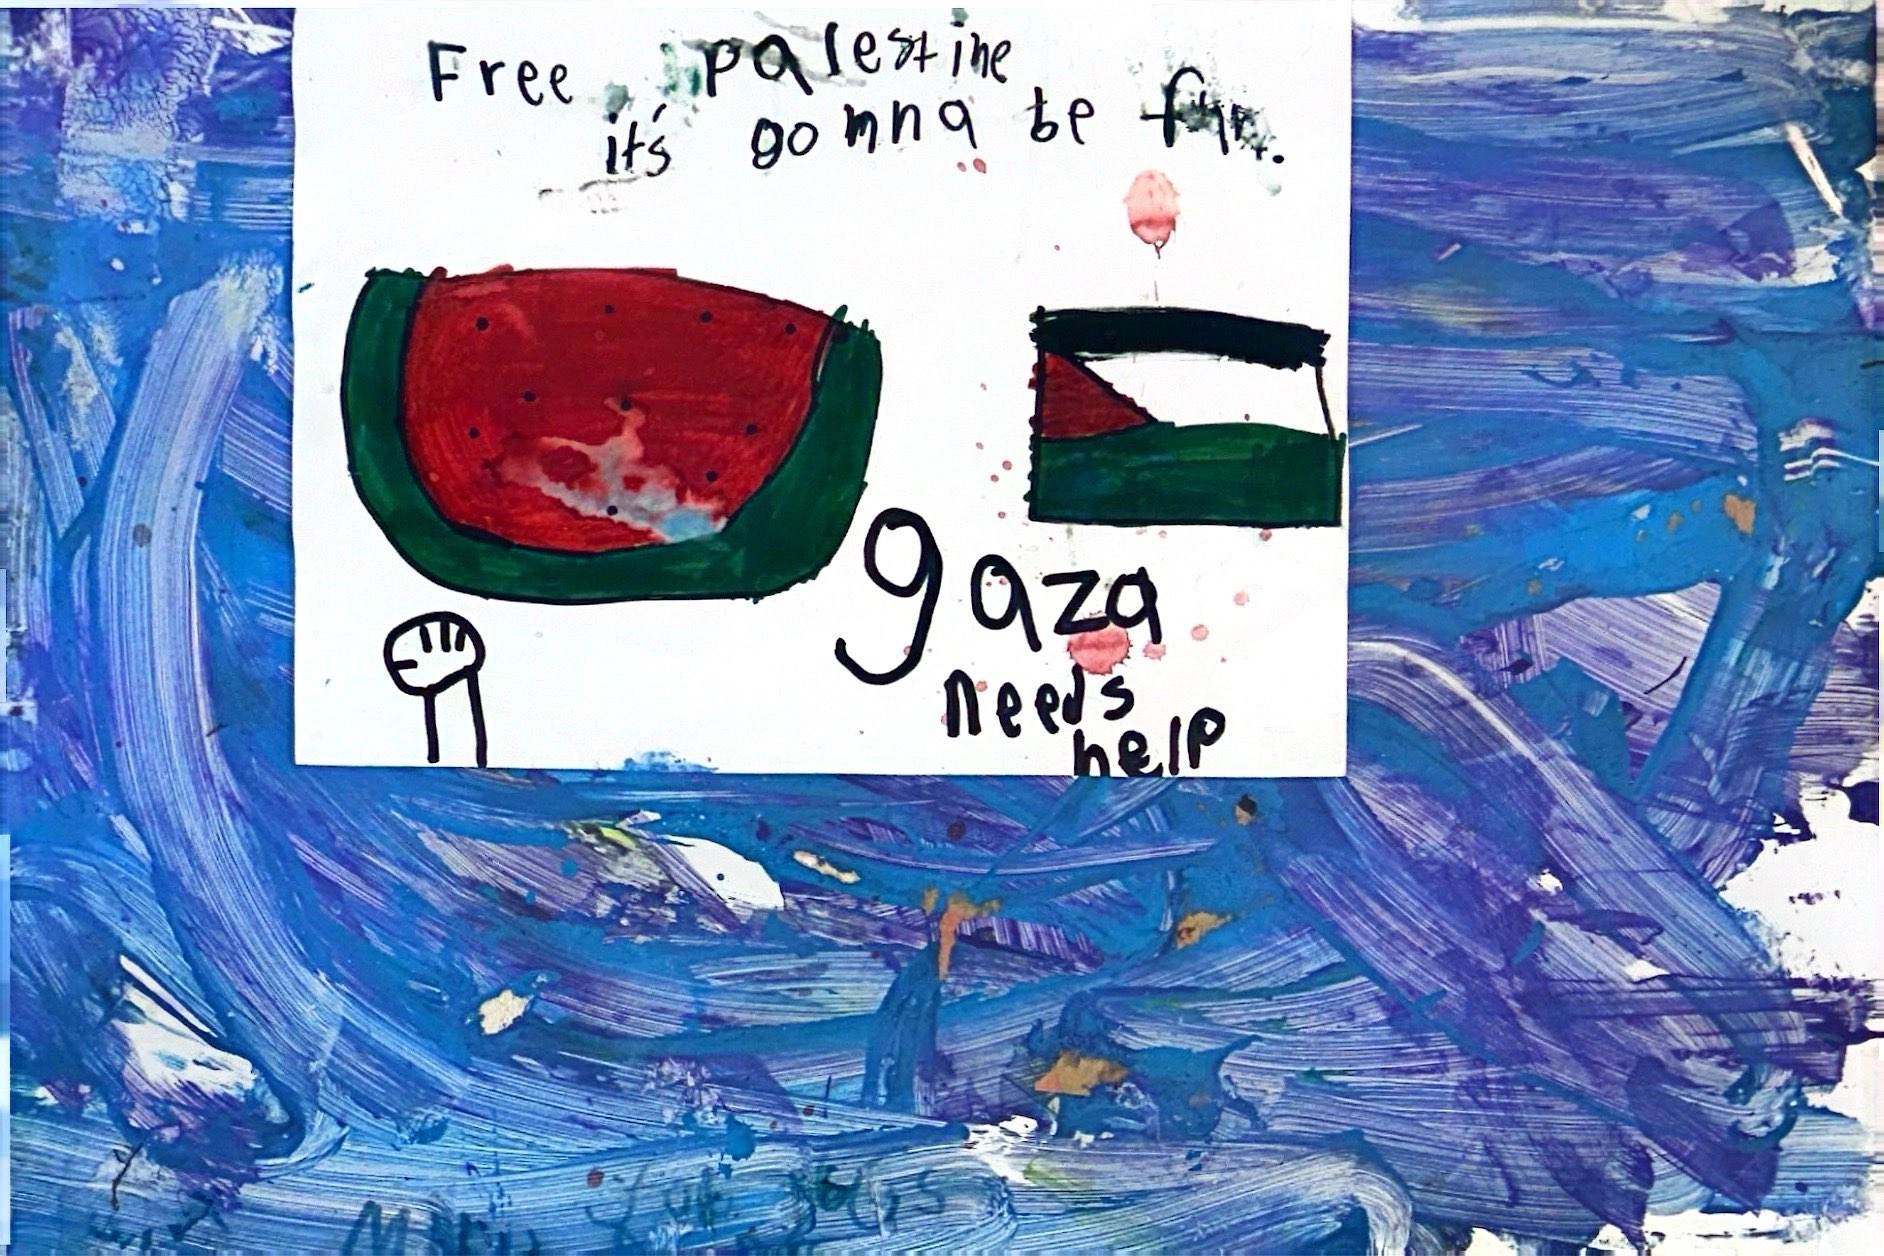 Free palestine
it's gonna be fun.
gaza
needs
help